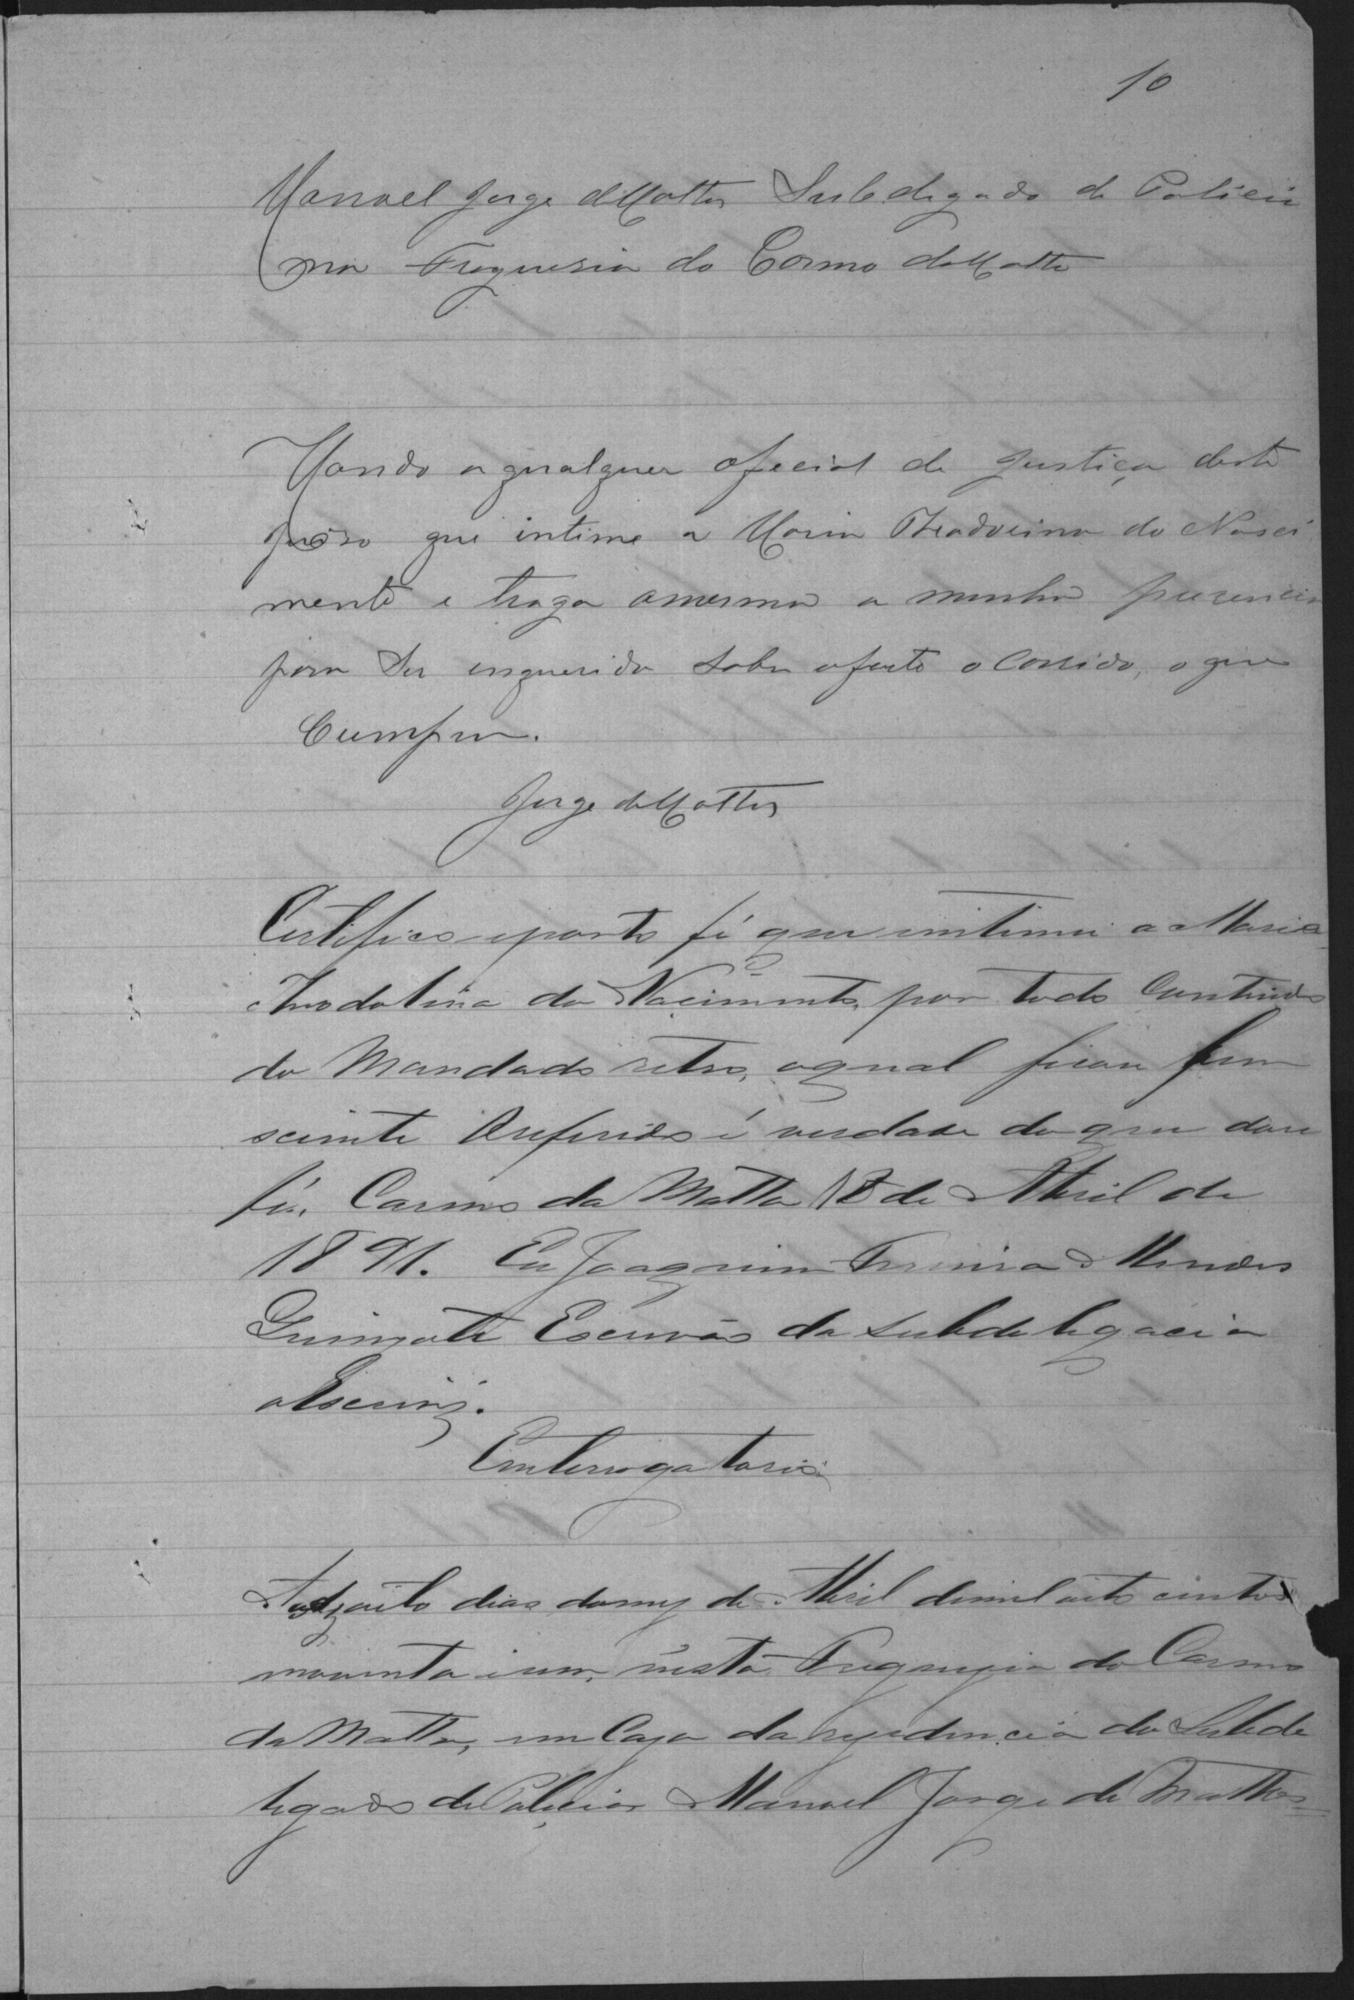 10
Manoel Jorge de Mattos Subdelegado de Policia
na Freguesia do Carmo da Matta
Mando a qualquer oficial de Justiça deste
Juiso que intime a Maria Theadorina do Nasci
mento e traga amesma a minha presencia
para Ser enquerida Sobre ofacto o Corrido, o que
Cumpra.
Jorge de Mattos
Certifico eporto fé que intimei a Maria
do Nacimento, por todo Contiudo
do Mandado retro, aqual ficou bem
sciente Oreferido é verdade do que dou
fé. Carmo da Matta 18 de Abril de
1891. Eu Joaquim Ferreira Mendes
Escrivão da subdelegacia
oEscrivi.
Enterrogatorio
dias do mez de Abril demil oito centos
noventa ium, nesta Freguezia do Carmo
da Matta, em Caza da rezidencia do Subde
legado de Policia Manoel Jorge de Mattos